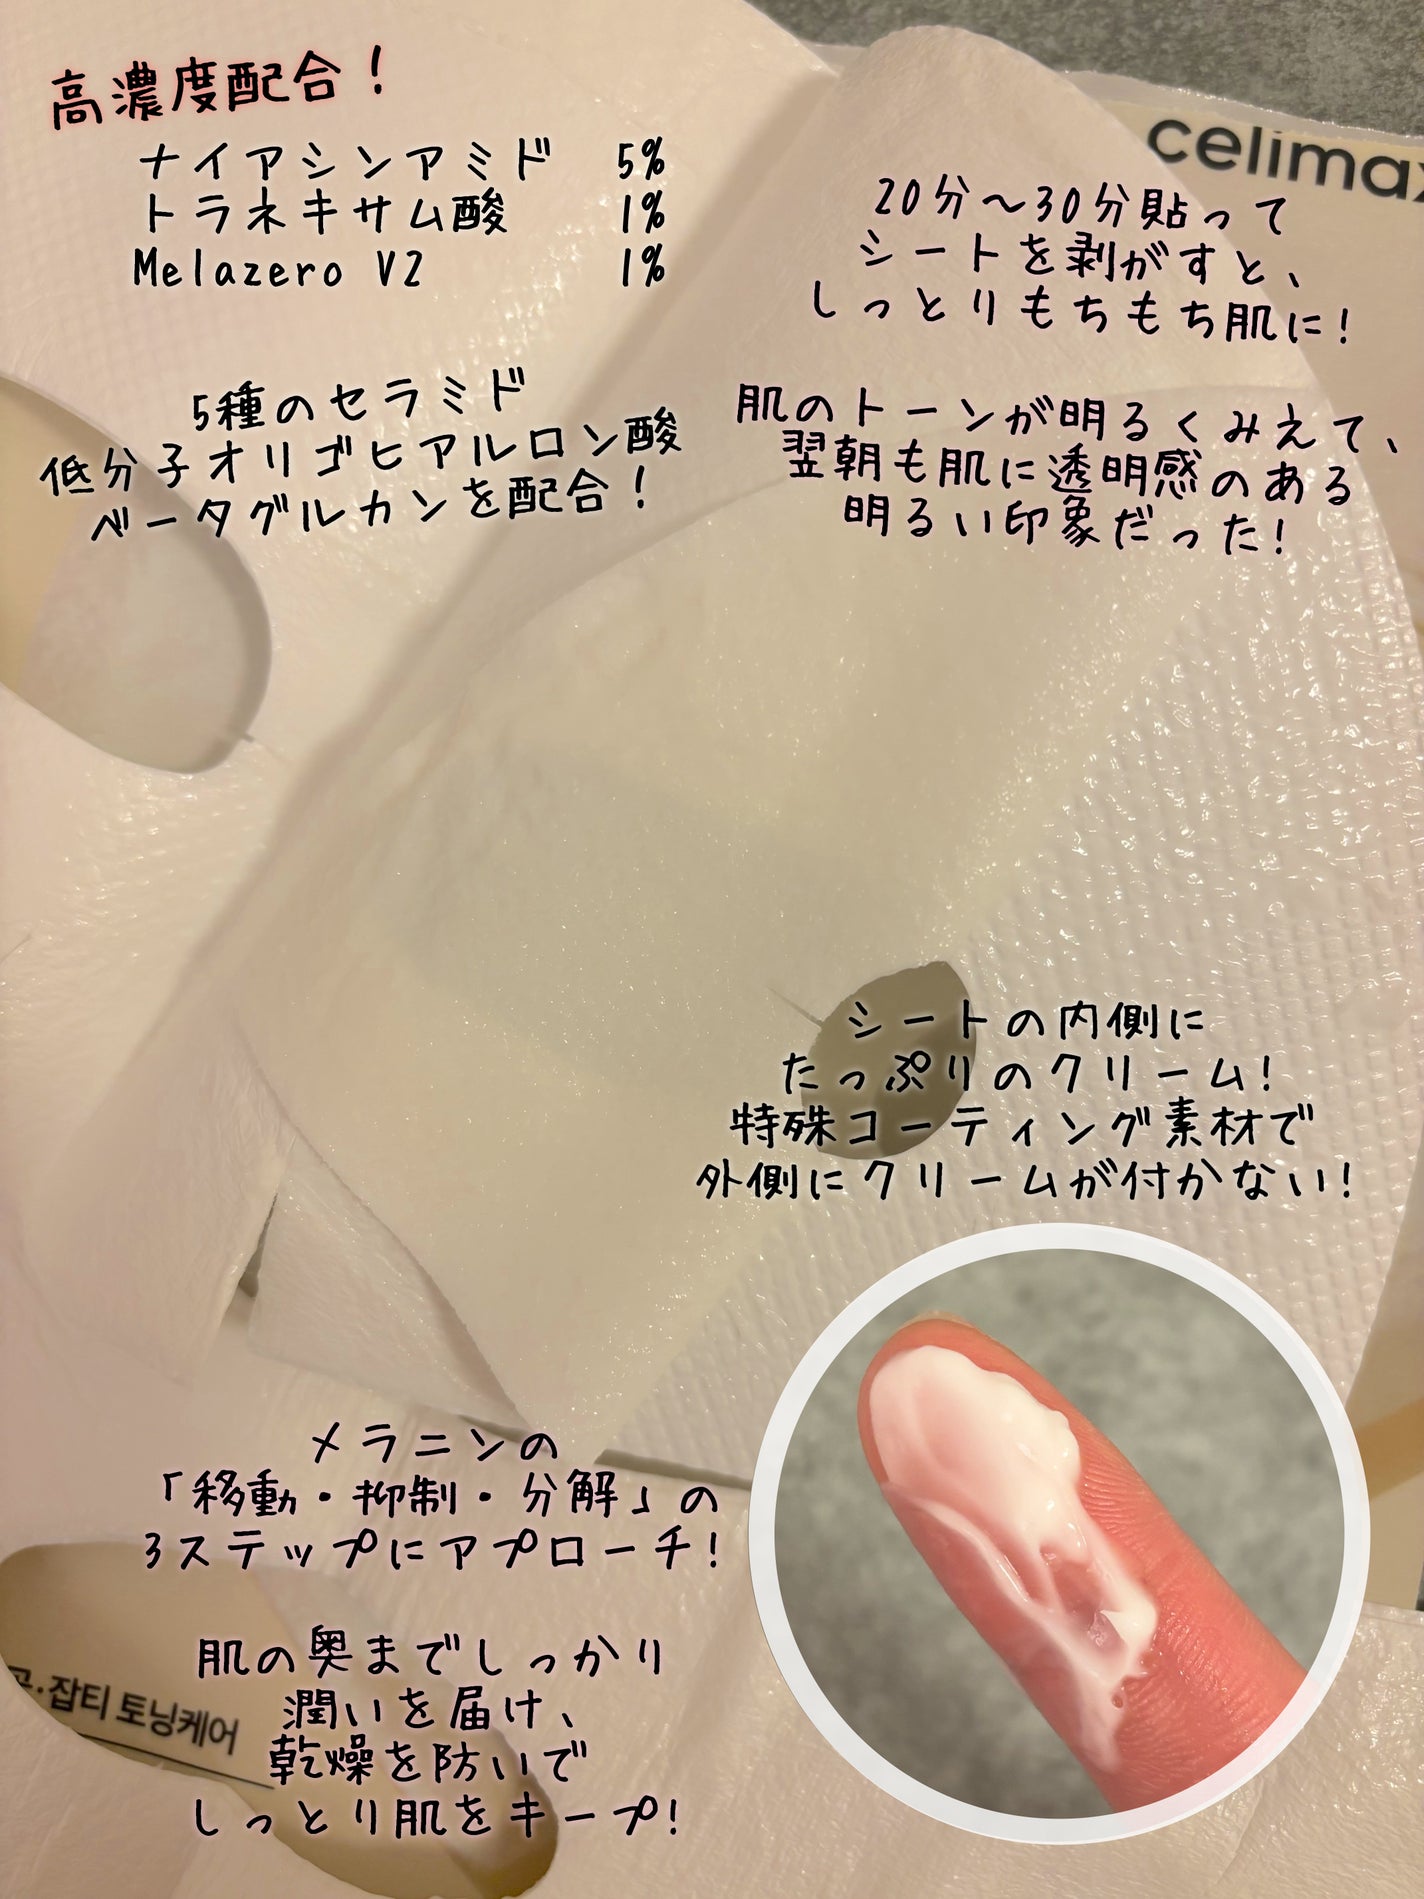 高濃度配合！
ナイアシンアミド 5%
トラネキサム酸 1%
Melazero V2 1%
5種のセラミド
低分子オリゴヒアルロン酸
ベータグルカンを配合！
celimax
20分〜30分貼って
シートを剥がすと、
しっとりもちもち肌に！
肌のトーンが明るくみえて、
翌朝も肌に透明感のある
明るい印象だった！
シートの内側に
たっぷりのクリーム！
特殊コーティング素材で
外側にクリームが付かない！
メラニンの
「移動・抑制・分解」の
3ステップにアプローチ！
肌の奥までしっかり
潤いを届け、
乾燥を防いで
しっとり肌をキープ！
·잡티 토닝케어